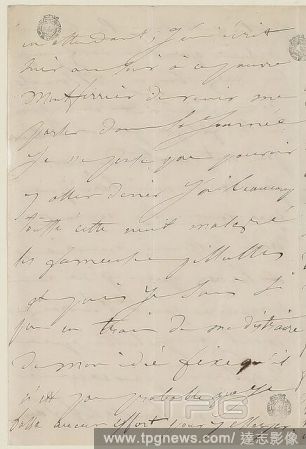 en attendant, j'ai écrit
hier au soir à ce pauvre
Montferrier de venir me
parler dans la journée
Je ne pense pas pouvoir
y aller dîner J'ai beaucoup
toussé cette nuit malgré
les
et puis je suis si
peu en train de me distraire
de mon idée fixe qu'il
n'est pas probable que je
fasse aucun effort pour y
TPG
www.tpgnews.com / 達志影像